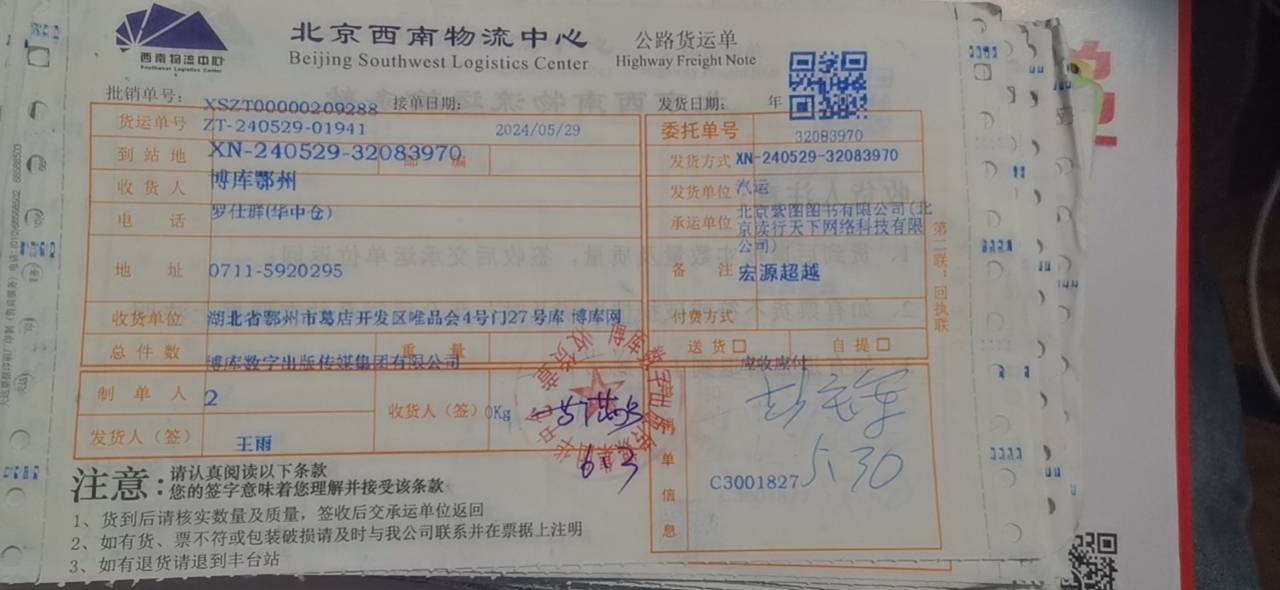 西南物流中心
Southwest Logistics Center
北京西南物流中心
Beijing Southwest Logistics Center
公路货运单
Highway Freight Note
批销单号：
XSZT00000209288
接单日期：
发货日期：
年
货运单号
ZT-240529-01941
2024/05/29
委托单号
32083970
到站地
XN-240529-32083970
邮编
发货方式
XN-240529-32083970
收货人
博库鄂州
发货单位
汽运
电话
罗仕群(华中仓)
承运单位
北京紫图图书有限公司(北
京读行天下网络科技有限
公司)
地址
0711-5920295
备注
宏源超越
收货单位
湖北省鄂州市葛店开发区唯品会4号门27号库 博库网
付费方式
总件数
博库数字出版传媒集团有限公司
重量
送货□
自提□
应收应付
制单人
2
收货人（签）
0Kg
6.3
发货人（签）
王雨
单信息
C3001827
5.30
第二联：回执联
注意：
请认真阅读以下条款
您的签字意味着您理解并接受该条款
1、货到后请核实数量及质量，签收后交承运单位返回
2、如有货、票不符或包装破损请及时与我公司联系并在票据上注明
3、如有退货请退到丰台站